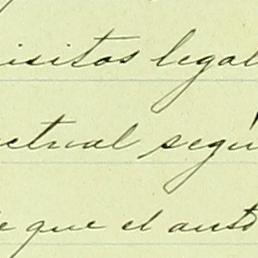 isitos legal
ctual segú
que el auto